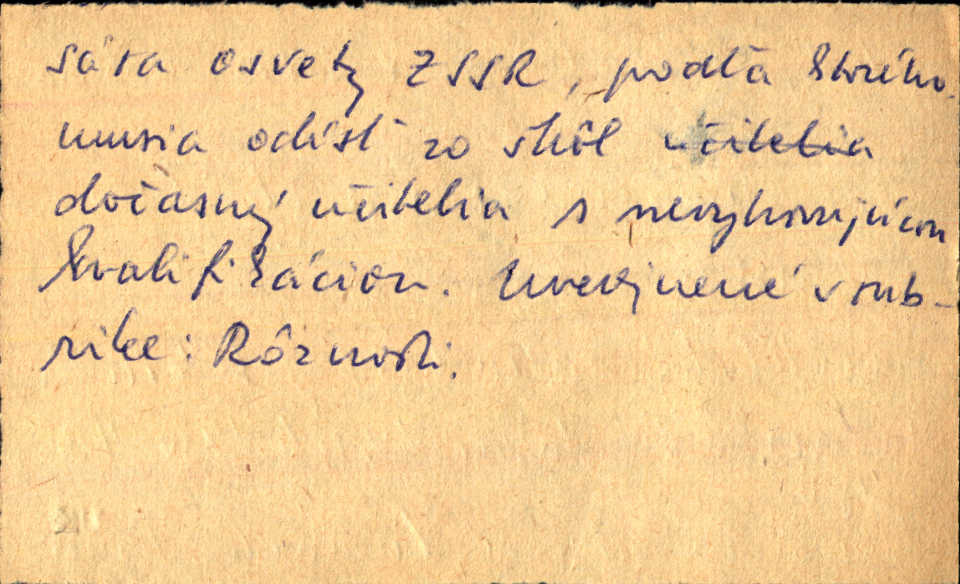 sára osvety ZSSR, podľa ktorého
musia odísť zo škôl učitelia
dočasný učitelia s nevyhovujúcou
kvalifikáciou. Uverejnené v rub-
rike: Rôznosti.